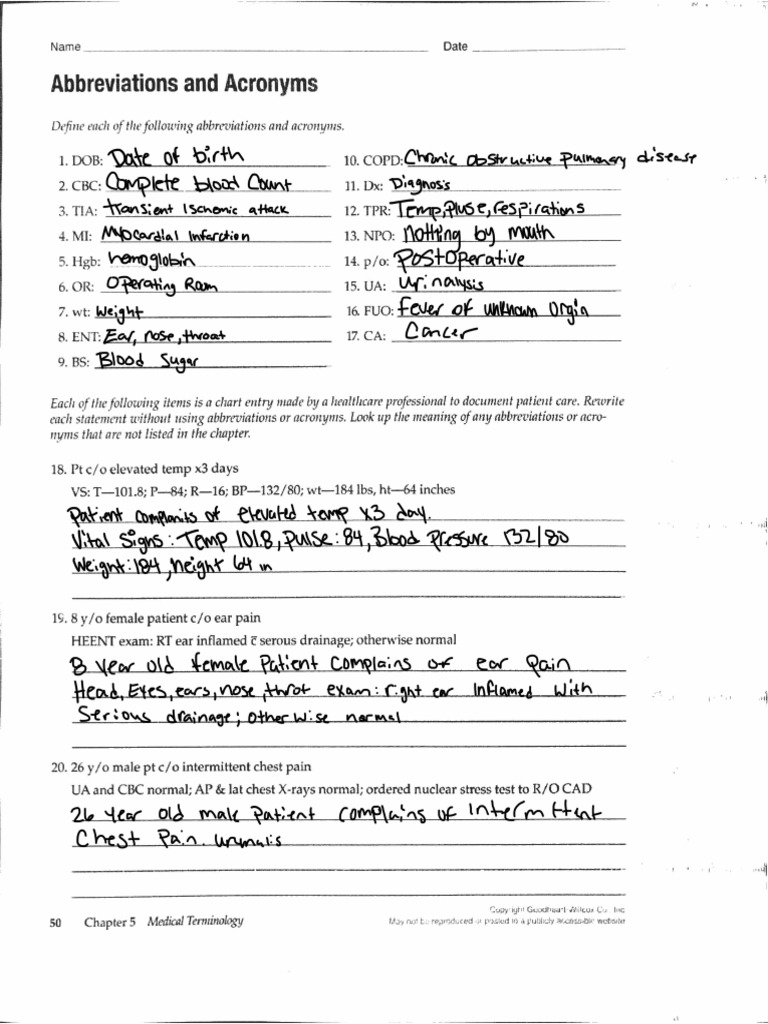 Name Date
Abbreviations and Acronyms
Define each of the following abbreviations and acronyms.
1. DOB: Date of birth
2. CBC: Complete blood Count
3. TIA: transient Ischemic attack
4. MI: Myocardial Infarction
5. Hgb: hemoglobin
6. OR: Operating Room
7. wt: Weight
8. ENT: Ear, nose, throat
9. BS: Blood Sugar
10. COPD: Chronic Obstructive Pulmonary disease
11. Dx: Diagnosis
12. TPR: Temp, Pluse, respirations
13. NPO: nothing by mouth
14. p/o: Postoperative
15. UA: urinalysis
16. FUO: fever of unknown Orgin
17. CA: Cancer
Each of the following items is a chart entry made by a healthcare professional to document patient care. Rewrite
each statement without using abbreviations or acronyms. Look up the meaning of any abbreviations or acro-
nyms that are not listed in the chapter.
18. Pt c/o elevated temp x3 days
VS: T—101.8; P—84; R—16; BP—132/80; wt—184 lbs, ht—64 inches
Patient complanits of elevated temp x3 day.
Vital Signs: Temp 101.8, Pulse: 84, Blood Pressure 132/80
Weight: 184, height 64 in
19. 8 y/o female patient c/o ear pain
HEENT exam: RT ear inflamed c̅ serous drainage; otherwise normal
8 year old female Patient Complains of ear Pain
Head, Eyes, ears, nose, throt exam: right ear Inflamed With
Serious drainage; Otherwise normal
20. 26 y/o male pt c/o intermittent chest pain
UA and CBC normal; AP & lat chest X-rays normal; ordered nuclear stress test to R/O CAD
26 year old male Patient complains of Intermittent
Chest Pain.
50 Chapter 5 Medical Terminology
Copyright Goodheart-Willcox Co., Inc.
May not be reproduced or posted to a publicly accessible website